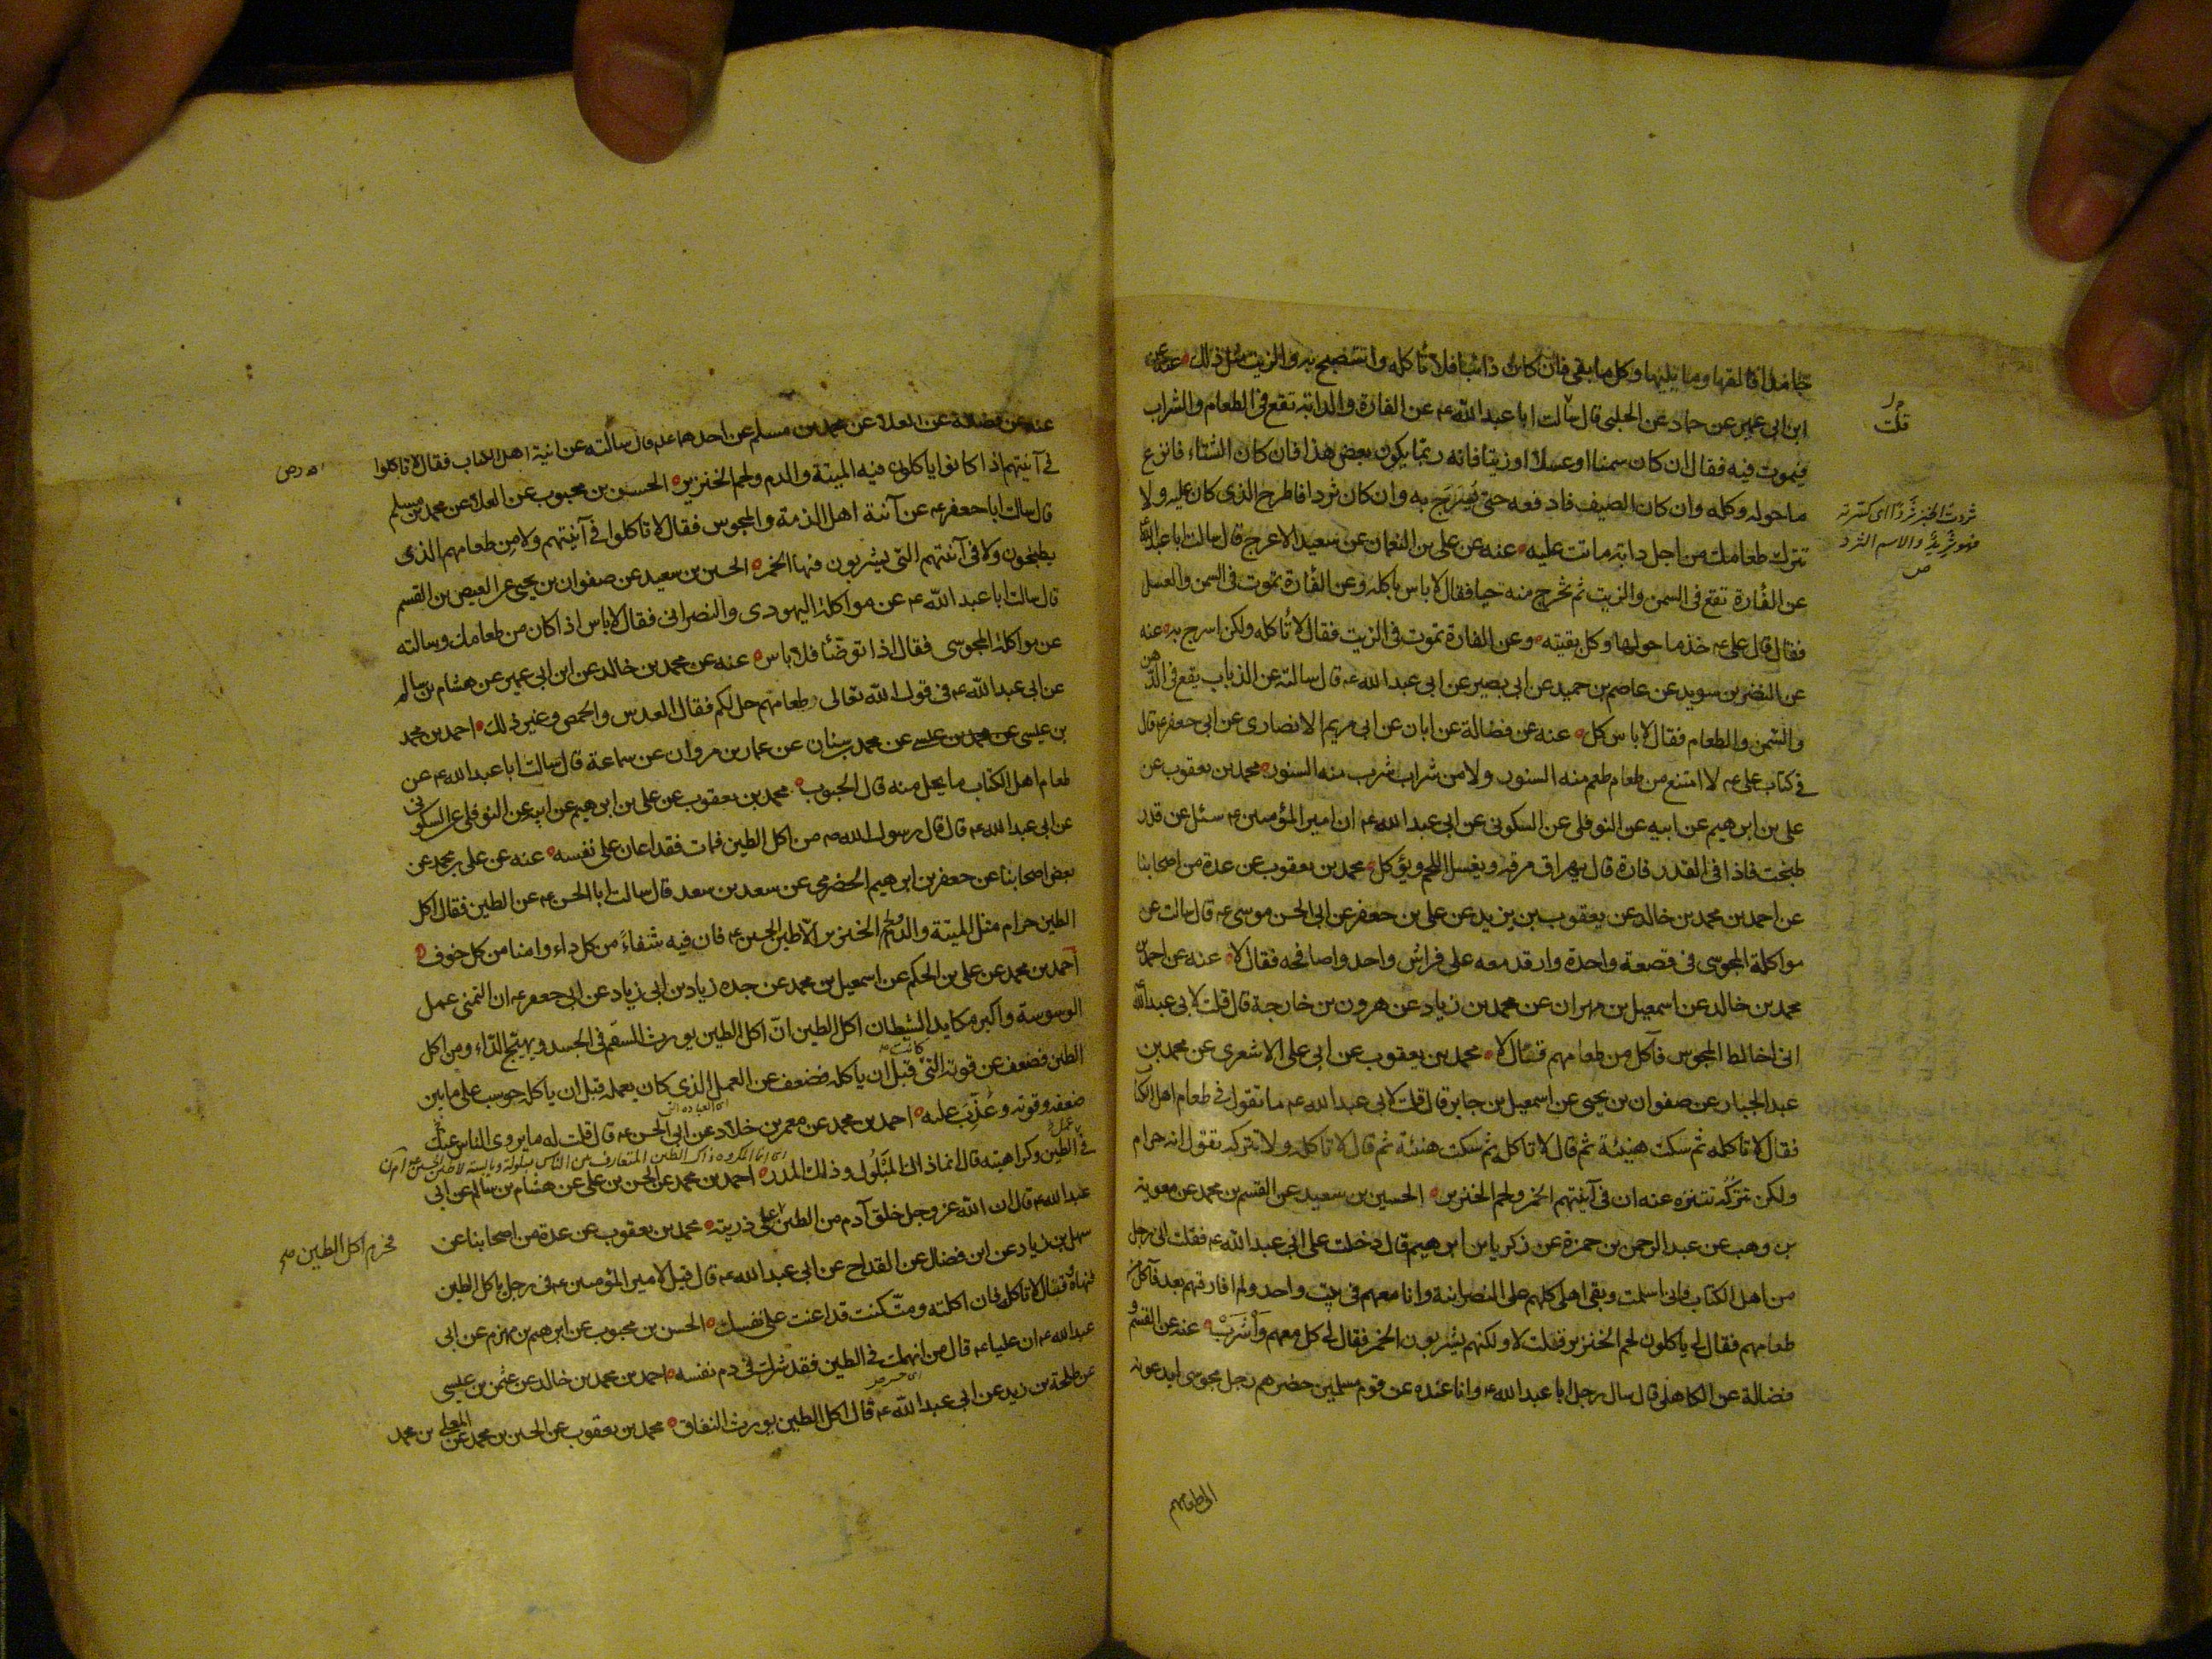 جامدا فالقها وما يليها وكل ما بقى فان كان ذائبا فلا تأكله واستصبح به والزيت مثل ذلك عنه عن
ابن ابى عمير عن حماد عن الحلبى قال سألت ابا عبد الله ع عن الفارة والدابة تقع فى الطعام والشراب
فيموت فيه فقال ان كان سمنا او عسلا او زيتا فانه ربما يكون بعض هذا فان كان الشتاء فانزع
ما حوله وكله وان كان الصيف فادفعه حتى يسرج به وان كان ثردا فاطرح الذى كان عليه ولا
تترك طعامك من اجل دابة ماتت عليه عنه عن على بن النعمان عن سعيد الاعرج قال سالت ابا عبد الله
عن الفارة تقع فى السمن والزيت ثم تخرج منه حيا فقال لا باس باكله وعن الفارة تموت فى السمن والعسل
فقال قال على ع خذ ما حولها وكل بقيته وعن الفارة تموت فى الزيت فقال لا تاكله ولكن اسرج به عنه
عن النضر بن سويد عن عاصم بن حميد عن ابى بصير عن ابى عبد الله ع قال سالته عن الذباب يقع فى الدهن
والسمن والطعام فقال لا باس كل عنه عن فضالة عن ابان عن ابى مريم الانصارى عن ابى جعفر ع قال
فى كتاب على ع لا امتنع من طعام طعم منه السنور ولا من شراب شرب منه السنور محمد بن يعقوب عن
على بن ابرهيم عن ابيه عن النوفلى عن السكونى عن ابى عبد الله ع ان امير المؤمنين ع سئل عن قدر
طبخت فاذا فى القدر فارة قال يهراق مرقه ويغسل اللحم ويؤكل محمد بن يعقوب عن عدة من اصحابنا
عن احمد بن محمد بن خالد عن يعقوب بن يزيد عن على بن جعفر عن ابى الحسن موسى ع قال سالت عن
مواكلة المجوسى فى قصعة واحدة وارقد معه على فراش واحد واصافحه فقال لا عنه عن احمد بن
محمد بن خالد عن اسمعيل بن مهران عن محمد بن زياد عن هرون بن خارجة قال قلت لابى عبد الله
انى اخالط المجوس فآكل من طعامهم فقال لا محمد بن يعقوب عن ابى على الاشعرى عن محمد بن
عبد الجبار عن صفوان بن يحيى عن اسمعيل بن جابر قال قلت لابى عبد الله ع ما تقول فى طعام اهل الكتاب
فقال لا تاكله ثم سكت هنيئة ثم قال لا تاكله ثم سكت هنيئة ثم قال لا تاكله ولا تتركه تقول انه حرام
ولكن تتركه تتنزه عنه ان فى آنيتهم الخمر ولحم الخنزير الحسين بن سعيد عن القسم بن محمد عن معوية
بن وهب عن عبد الرحمن بن حمزة عن زكريا بن ابرهيم قال دخلت على ابى عبد الله ع فقلت انى رجل
من اهل الكتاب وانى اسلمت وبقى اهلى كلهم على النصرانية وانا معهم فى بيت واحد ولم افارقهم بعد فآكل من
طعامهم فقال لى ياكلون لحم الخنزير فقلت لا ولكنهم يشربون الخمر فقال لى كل معهم واشرب عنه عن القسم و
فضالة عن الكاهلى قال سال رجل ابا عبد الله ع وانا عنده عن قوم مسلمين حضرهم رجل مجوسى ايدعونه
الى طعامهم
قلت
ثردت الخبز ثردا اى كسرته
فهو ثريد والاسم الثرد
ص
عنه عن فضالة عن العلا عن محمد بن مسلم عن احدهما ع قال سالته عن انية اهل الكتاب فقال لا تاكلوا
فى آنيتهم اذا كانوا ياكلون فيه الميتة والدم ولحم الخنزير الحسن بن محبوب عن العلا عن محمد بن مسلم
قال سالت ابا جعفر ع عن آنية اهل الذمة والمجوس فقال لا تاكلوا فى آنيتهم ولا من طعامهم الذى
يطبخون ولا فى آنيتهم التى يشربون فيها الخمر الحسين بن سعيد عن صفوان بن يحيى عن العيص بن القسم
قال سالت ابا عبد الله ع عن مواكلة اليهودى والنصرانى فقال لا باس اذا كان من طعامك وسالته
عن مواكلة المجوسى فقال اذا توضأ فلا باس عنه عن محمد بن خالد عن ابن ابى عمير عن هشام بن سالم
عن ابى عبد الله ع فى قول الله تعالى وطعامهم حل لكم فقال العدس والحمص وغير ذلك احمد بن محمد
بن عيسى عن محمد بن عيسى عن محمد بن سنان عن عمار بن مروان عن سماعة قال سالت ابا عبد الله ع عن
طعام اهل الكتاب ما يحل منه قال الحبوب محمد بن يعقوب عن على بن ابرهيم عن ابيه عن النوفلى عن السكونى
عن ابى عبد الله ع قال قال رسول الله ص من اكل الطين فمات فقد اعان على نفسه عنه عن على بن محمد عن
بعض اصحابنا عن جعفر بن ابرهيم الحضرمى عن سعد بن سعد قال سالت ابا الحسن ع عن الطين فقال اكل
الطين حرام مثل الميتة والدم ولحم الخنزير الا طين الحسين ع فان فيه شفاء من كل داء وامنا من كل خوف
احمد بن محمد عن على بن الحكم عن اسمعيل بن محمد عن جده زياد بن ابى زياد عن ابى جعفر ع ان التمنى عمل
الوسوسة واكبر مكايد الشيطان اكل الطين ان اكل الطين يورث السقم فى الجسد ويهيج الداء ومن اكل
الطين فضعف عن قوته التى كانت قبل ان ياكله فضعف عن العمل الذى كان يعمله قبل ان ياكله حوسب على ما بين
ضعفه وقوته وعذب عليه احمد بن محمد عن معمر بن خلاد عن ابى الحسن ع قال قلت له ما يروى الناس عنك
فى الطين وكراهيته قال انما ذاك المبلول وذلك المدر احمد بن محمد عن الحسن بن على عن هشام بن سالم عن ابى
عبد الله ع قال ان الله عز وجل خلق آدم من الطين على ذريته محمد بن يعقوب عن عدة من اصحابنا عن
فحرم اكل الطين صح
سهل بن زياد عن ابن فضال عن القداح عن ابى عبد الله ع قال قيل لامير المؤمنين ع فى رجل ياكل الطين
فنهاه فقال لا تاكله فان اكلته ومت كنت قد اعنت على نفسك الحسن بن محبوب عن ابرهيم بن مهزم عن ابى
عبد الله ع ان عليا ع قال من انهمك فى الطين فقد شرك فى دم نفسه احمد بن محمد بن خالد عن عثمن بن عيسى
عن طلحة بن زيد عن ابى عبد الله ع قال اكل الطين يورث النفاق محمد بن يعقوب عن الحسين بن محمد عن المعلى بن محمد